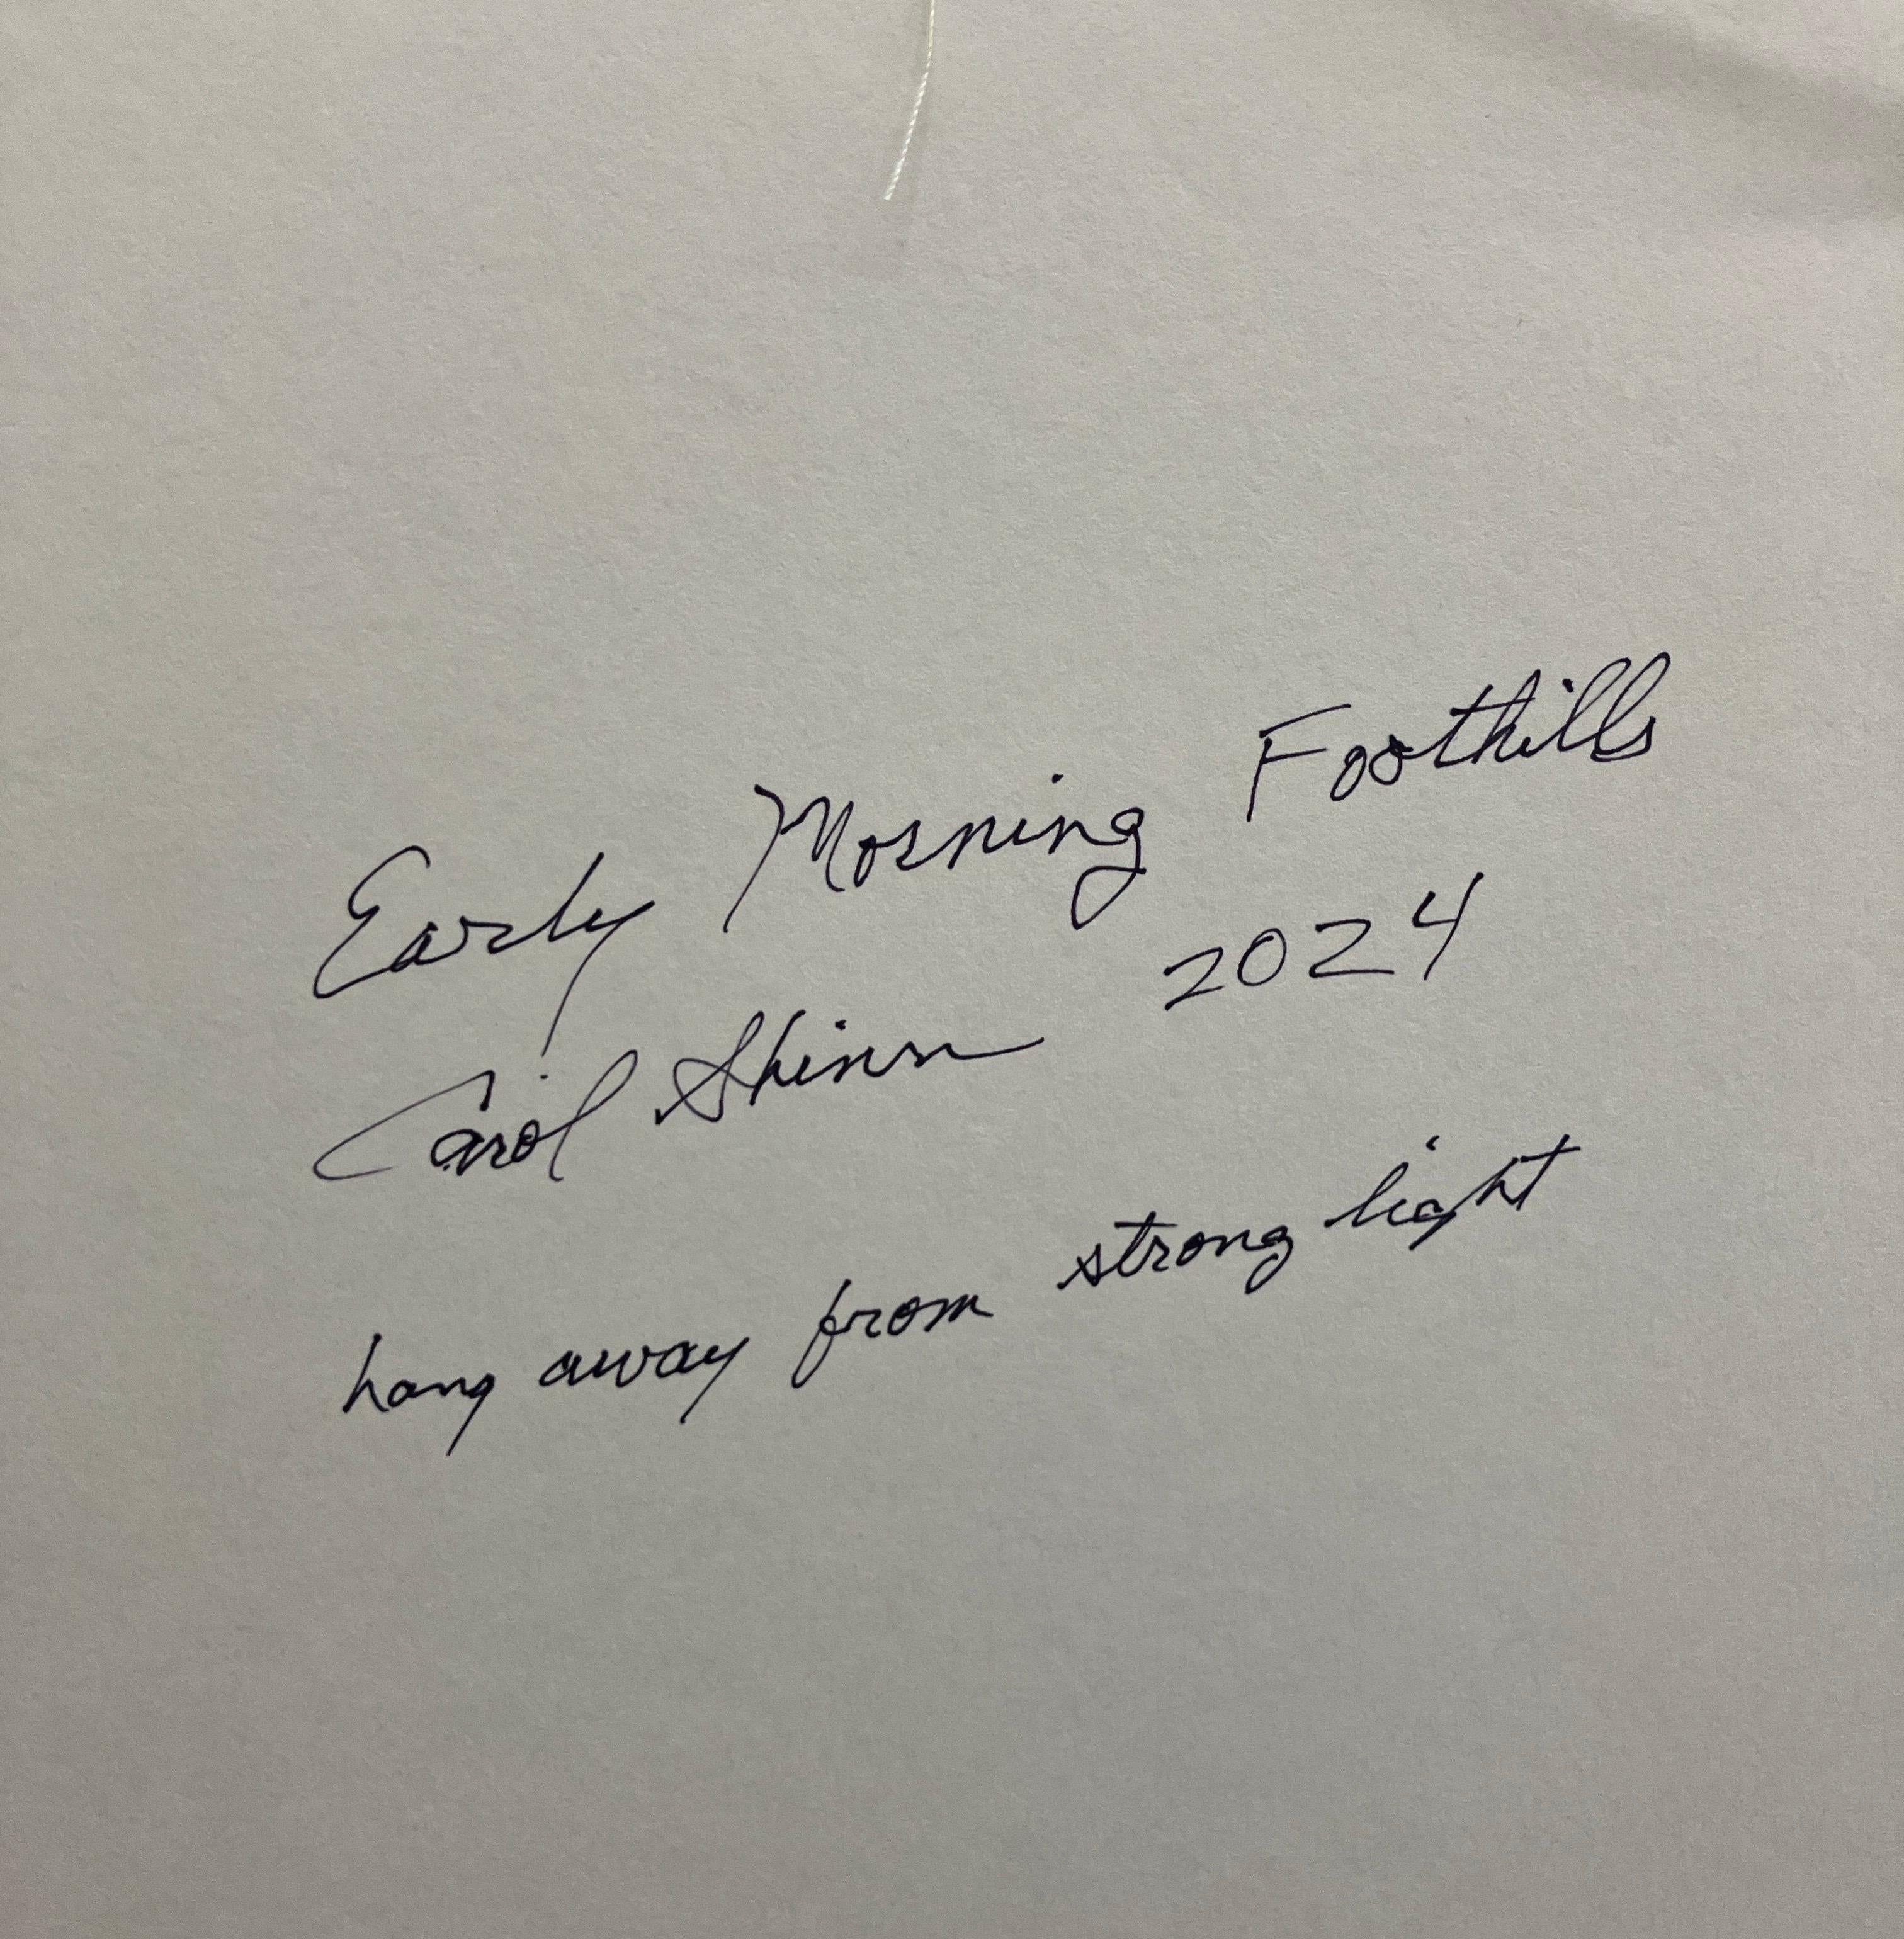 Early Morning Foothills
Carol Shinn 2024
hang away from strong light